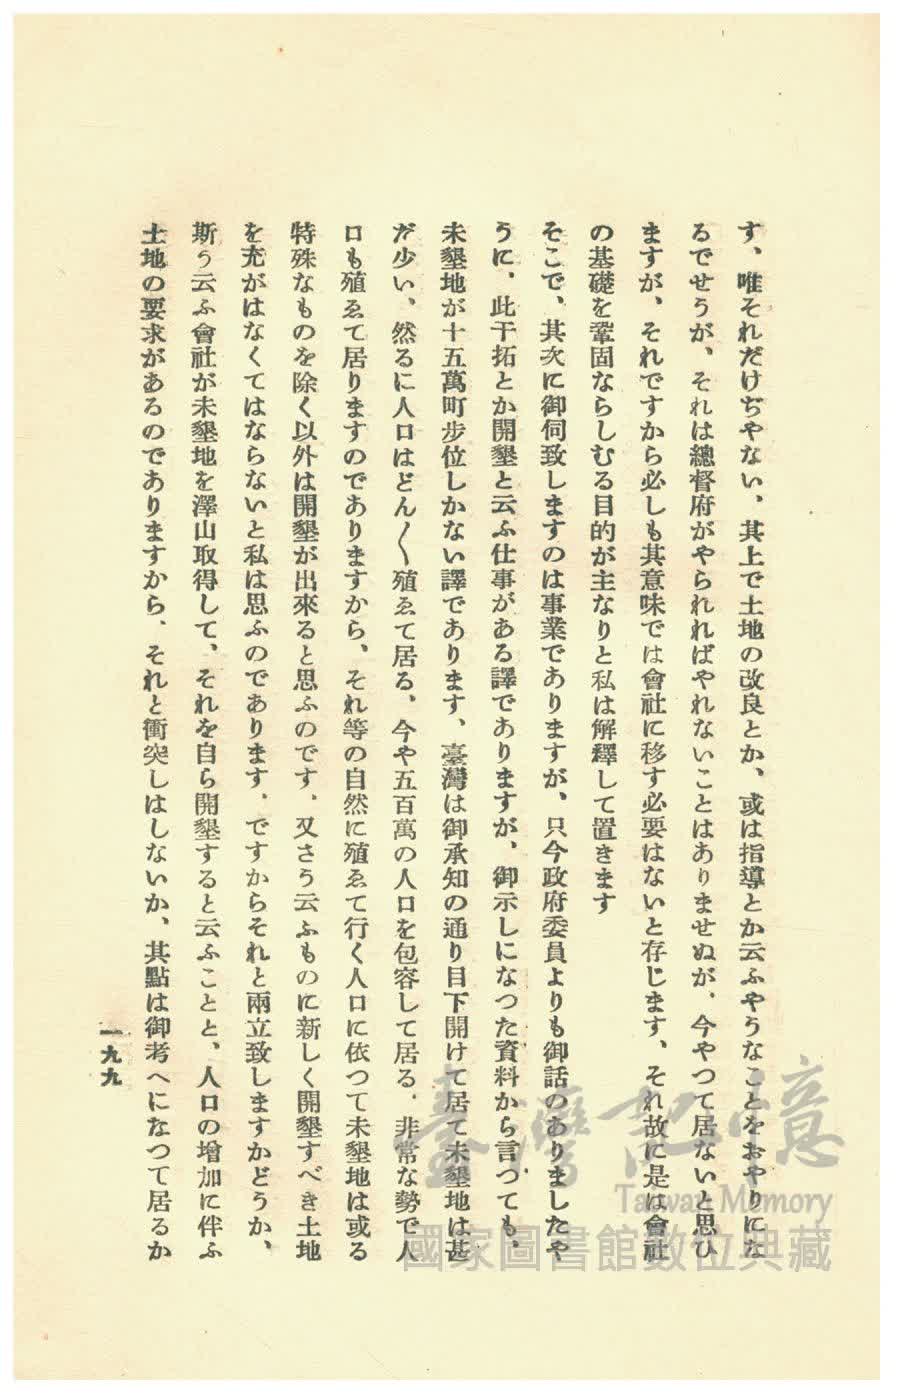 す、唯それだけぢやない、其上で土地の改良とか、或は指導とか云ふやうなことをおやりにな
るでせうが、それは總督府がやられればやれないことはありませぬが、今やつて居ないと思ひ
ますが、それですから必しも其意味では會社に移す必要はないと存じます、それ故に是は會社
の基礎を鞏固ならしむる目的が主なりと私は解釋して置きます
そこで、其次に御伺致しますのは事業でありますが、只今政府委員よりも御話のありましたや
うに、此干拓とか開墾と云ふ仕事がある譯でありますが、御示しになつた資料から言つても、
未墾地が十五萬町步位しかない譯であります、臺灣は御承知の通り目下開けて居て未墾地は甚
だ少い、然るに人口はどん〱殖ゑて居る、今や五百萬の人口を包容して居る、非常な勢で人
口も殖ゑて居りますのでありますから、それ等の自然に殖ゑて行く人口に依つて未墾地は或る
特殊なものを除く以外は開墾が出來ると思ふのです、又さう云ふものに新しく開墾すべき土地
を充がはなくてはならないと私は思ふのであります、ですからそれと兩立致しますかどうか、
斯う云ふ會社が未墾地を澤山取得して、それを自ら開墾すると云ふことと、人口の增加に伴ふ
土地の要求があるのでありますから、それと衝突しはしないか、其點は御考へになつて居るか
一九九
臺灣記憶
Taiwan Memory
國家圖書館數位典藏